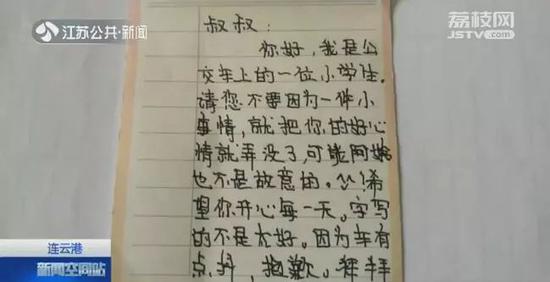 江苏公共·新闻
荔枝网
JSTV.com
叔叔：
你好，我是公
交车上的一位小学生。
请您不要因为一件小
事情，就把你的好心
情就弄没了，可能阿姨
也不是故意的。^^!希
望你开心每一天。字写
的不是太好。因为车有
点抖，抱歉。
连云港
新闻空间站